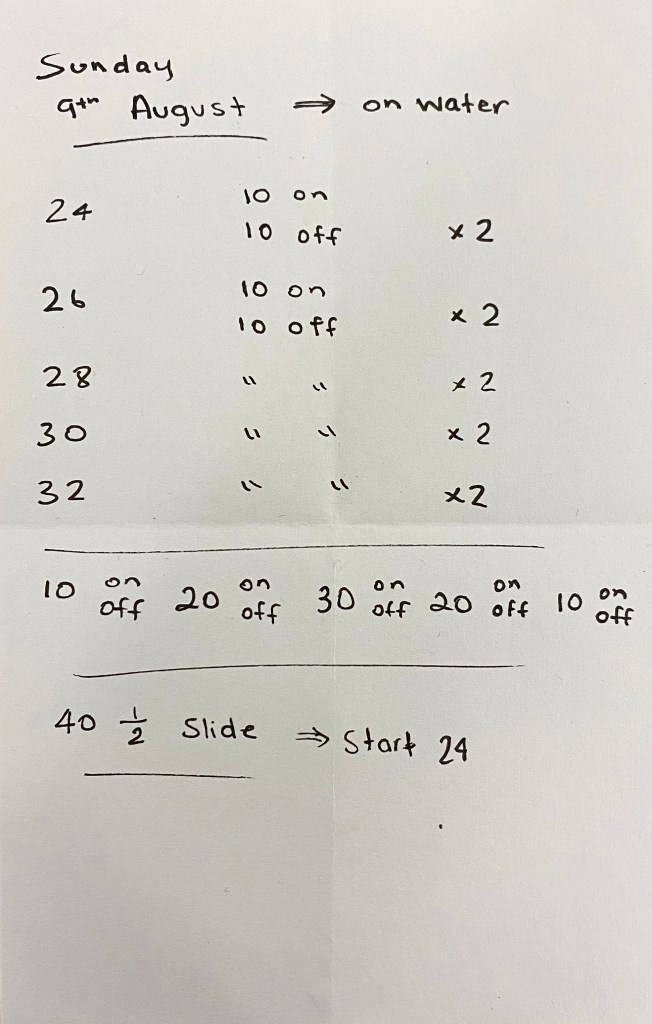 Sunday
9th August ⇒ on water
24 10 on
10 off x 2
26 10 on
10 off x 2
28 " " x 2
30 " " x 2
32 " " x2
10 on off 20 on off 30 on off 20 on off 10 on off
40 1/2 Slide ⇒ Start 24